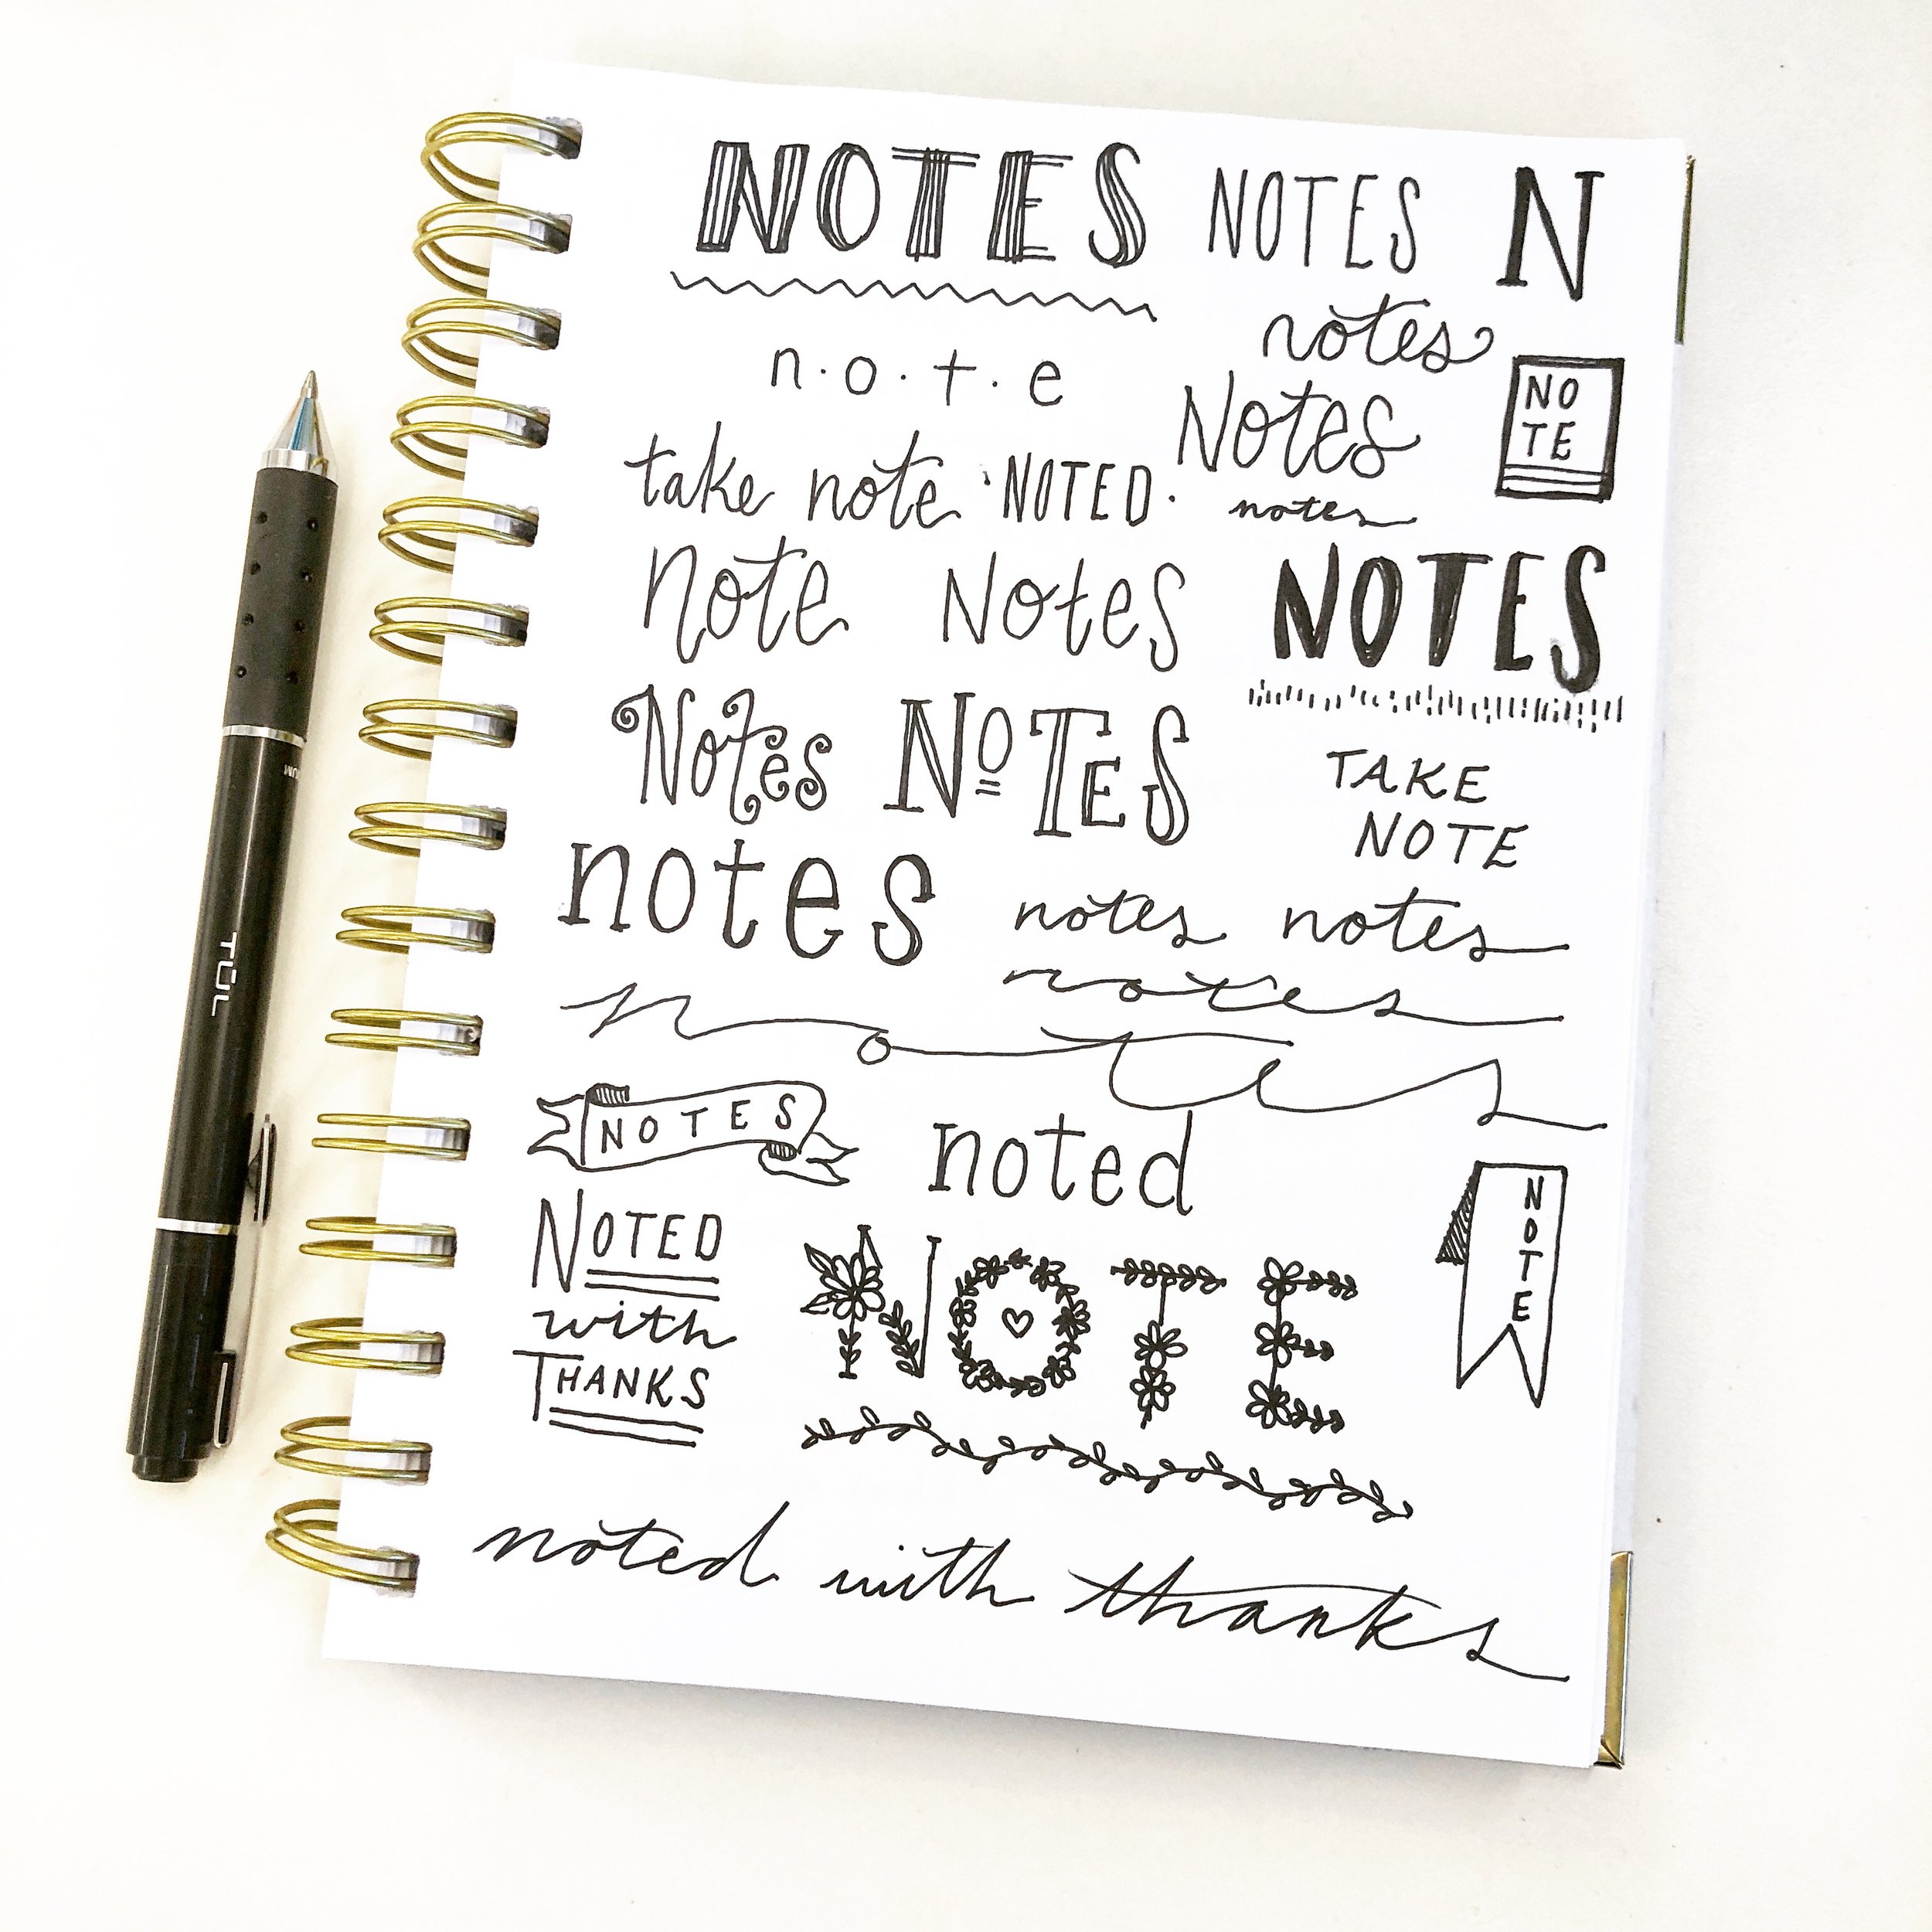 NOTES NOTES N
notes
n.o.t.e
Notes
NO
TE
take note ·NOTED·
notes
note Notes NOTES
Notes NOTES
TAKE
NOTE
notes notes notes
notes
notes
NOTES
noted
NOTE
NOTED
with
THANKS
NOTE
noted with thanks
TÜL